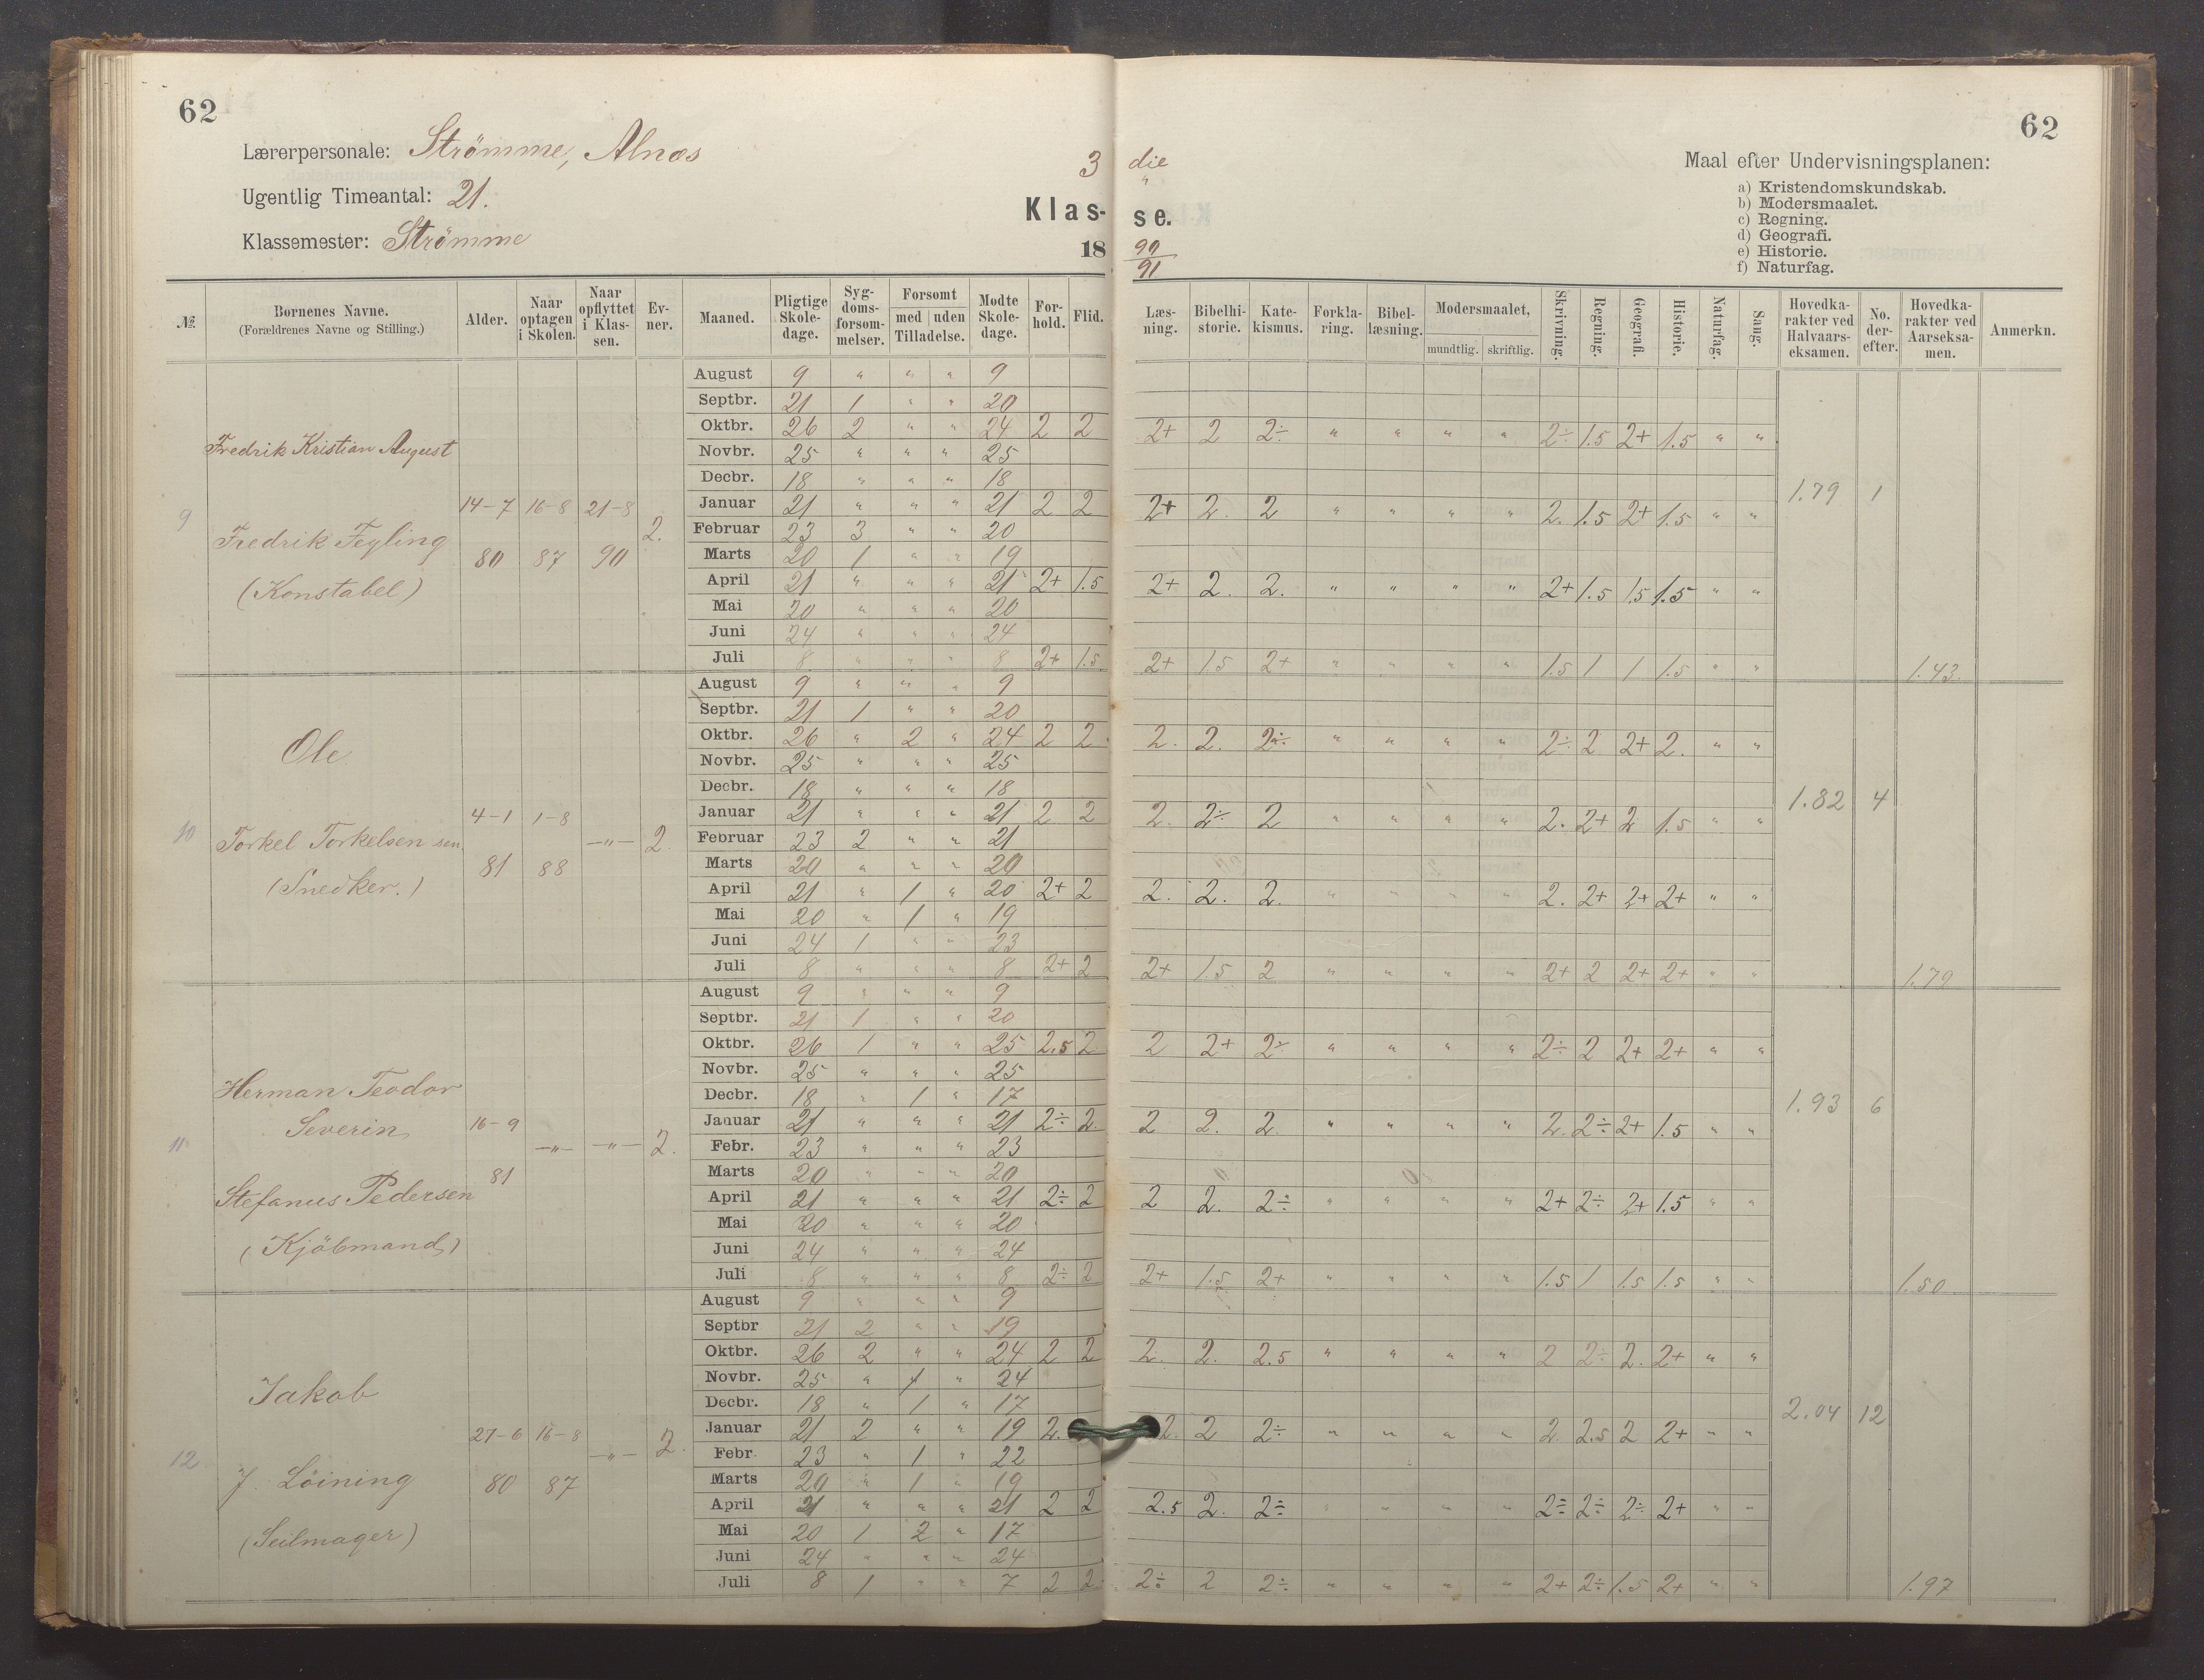 62
Lærerpersonale: Strömme, Alnæs
Ugentlig Timeantal: 21.
Klassemester: Strömme
3
Klas-
18
№
Børnenes Navne. (Forældrenes Navne og Stilling.)
Alder.
Naar optagen i Skolen.
Naar opflyttet i Klassen.
Evner.
Maaned.
Pligtige Skoledage.
Sygdomsforsømmelser.
Forsømt med uden Tilladelse.
Mødte Skoledage.
Forhold.
Flid.
9
Fredrik Kristian August
Fredrik Feyling
(Konstabel)
14-7 16-8 21-8
80 87 90
2.
August 9 " " " 9
Septbr. 21 1 " " 20
Oktbr. 26 2 " " 24 2 2
Novbr. 25 " " " 25
Decbr. 18 " " " 18
Januar 21 " " " 21 2 2
Februar 23 3 " " 20
Marts 20 1 " " 19
April 21 " " " 21 2+ 1.5
Mai 20 " " " 20
Juni 24 " " " 24
Juli 8 " " " 8 2+ 1.5
10
Ole
Torkel Torkelsen sen.
(Snedker.)
4-1 1-8
81 88
-"-
2.
August 9 " " " 9
Septbr. 21 1 " " 20
Oktbr. 26 " 2 " 24 2 2
Novbr. 25 " " " 25
Decbr. 18 " " " 18
Januar 21 " " " 21 2 2
Februar 23 2 " " 21
Marts 20 " " " 20
April 21 " 1 " 20 2+ 2
Mai 20 " 1 " 19
Juni 24 1 " " 23
Juli 8 " " " 8 2+ 2
11
Herman Teodor
Severin
Stefanus Pedersen
(Kjöbmand)
16-9
81
-"- -"-
2.
August 9 " " " 9
Septbr. 21 1 " " 20
Oktbr. 26 1 " " 25 2.5 2
Novbr. 25 " " " 25
Decbr. 18 " 1 " 17
Januar 21 " " " 21 2÷ 2.
Febr. 23 " " " 23
Marts 20 " " " 20
April 21 " " " 21 2÷ 2
Mai 20 " " " 20
Juni 24 " " " 24
Juli 8 " " " 8 2÷ 2
12
Jakob
J. Löining
(Seilmager)
27-6 16-8
80 87
-"-
2.
August 9 " " " 9
Septbr 21 2 " " 19
Oktbr. 26 2 " " 24 2 2
Novbr. 25 " 1 " 24
Decbr. 18 " 1 " 17
Januar 21 2 " " 19 2.
Febr. 23 " 1 " 22
Marts 20 " 1 " 19
April 21 " " " 21 2 2
Mai 20 1 2 " 17
Juni 24 " " " 24
Juli 8 1 " " 7 2 2
62
die
"
se.
90
91
Maal efter Undervisningsplanen:
a) Kristendomskundskab.
b) Modersmaalet.
c) Regning.
d) Geografi.
e) Historie.
f) Naturfag.
Læsning.
Bibelhistorie.
Katekismus.
Forklaring.
Bibellæsning.
Modersmaalet, mundtlig. skriftlig.
Skrivning.
Regning.
Geografi.
Historie.
Naturfag.
Sang.
Hovedkarakter ved Halvaarseksamen.
No. derefter.
Hovedkarakter ved Aarseksamen.
Anmerkn.
2+ 2 2÷ " " " " 2÷ 1.5 2+ 1.5 " "
1.79 1
2+ 2. 2 " " " " 2. 1.5 2+ 1.5 " "
2+ 2. 2. " " " " 2+ 1.5 1.5 1.5 " "
2+ 1.5 2+ " " " " 1.5 1 1 1.5 " " 1.43.
2. 2. 2÷ " " " " 2÷ 2 2+ 2. " "
1.82 4
2. 2÷ 2 " " " " 2. 2+ 2 1.5 " "
2. 2. 2. " " " " 2. 2+ 2+ 2+ " "
2+ 1.5 2 " " " " 2+ 2 2+ 2+ " " 1.79
2 2+ 2÷ " " " " 2÷ 2 2+ 2+ " "
1.93 6
2 2. 2. " " " " 2. 2÷ 2+ 1.5 " "
2 2. 2÷ " " " " 2+ 2÷ 2+ 1.5 " "
2+ 1.5 2+ " " " " 1.5 1 1.5 1.5 " " 1.50
2. 2. 2.5 " " " " 2 2÷ 2. 2+ " "
2.04 12
2. 2 2÷ " " " " 2 2.5 2 2+ " "
2.5 2. 2÷ " " " " 2÷ 2÷ 2÷ 2+ " "
2÷ 2 2÷ " " " " 2+ 2÷ 1.5 2+ " " 1.97